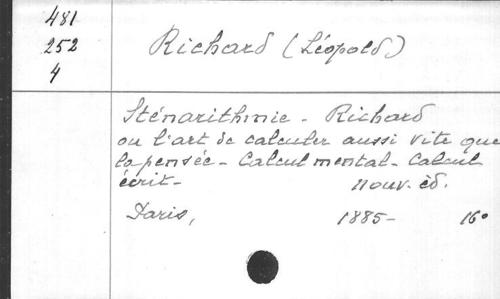 481
252
4
Richard (Léopold)
Sténarithmie - Richard
ou l'art de calculer aussi vite que
la pensée - Calcul mental - Calcul
écrit - nouv. éd.
Paris, 1885 - 16°